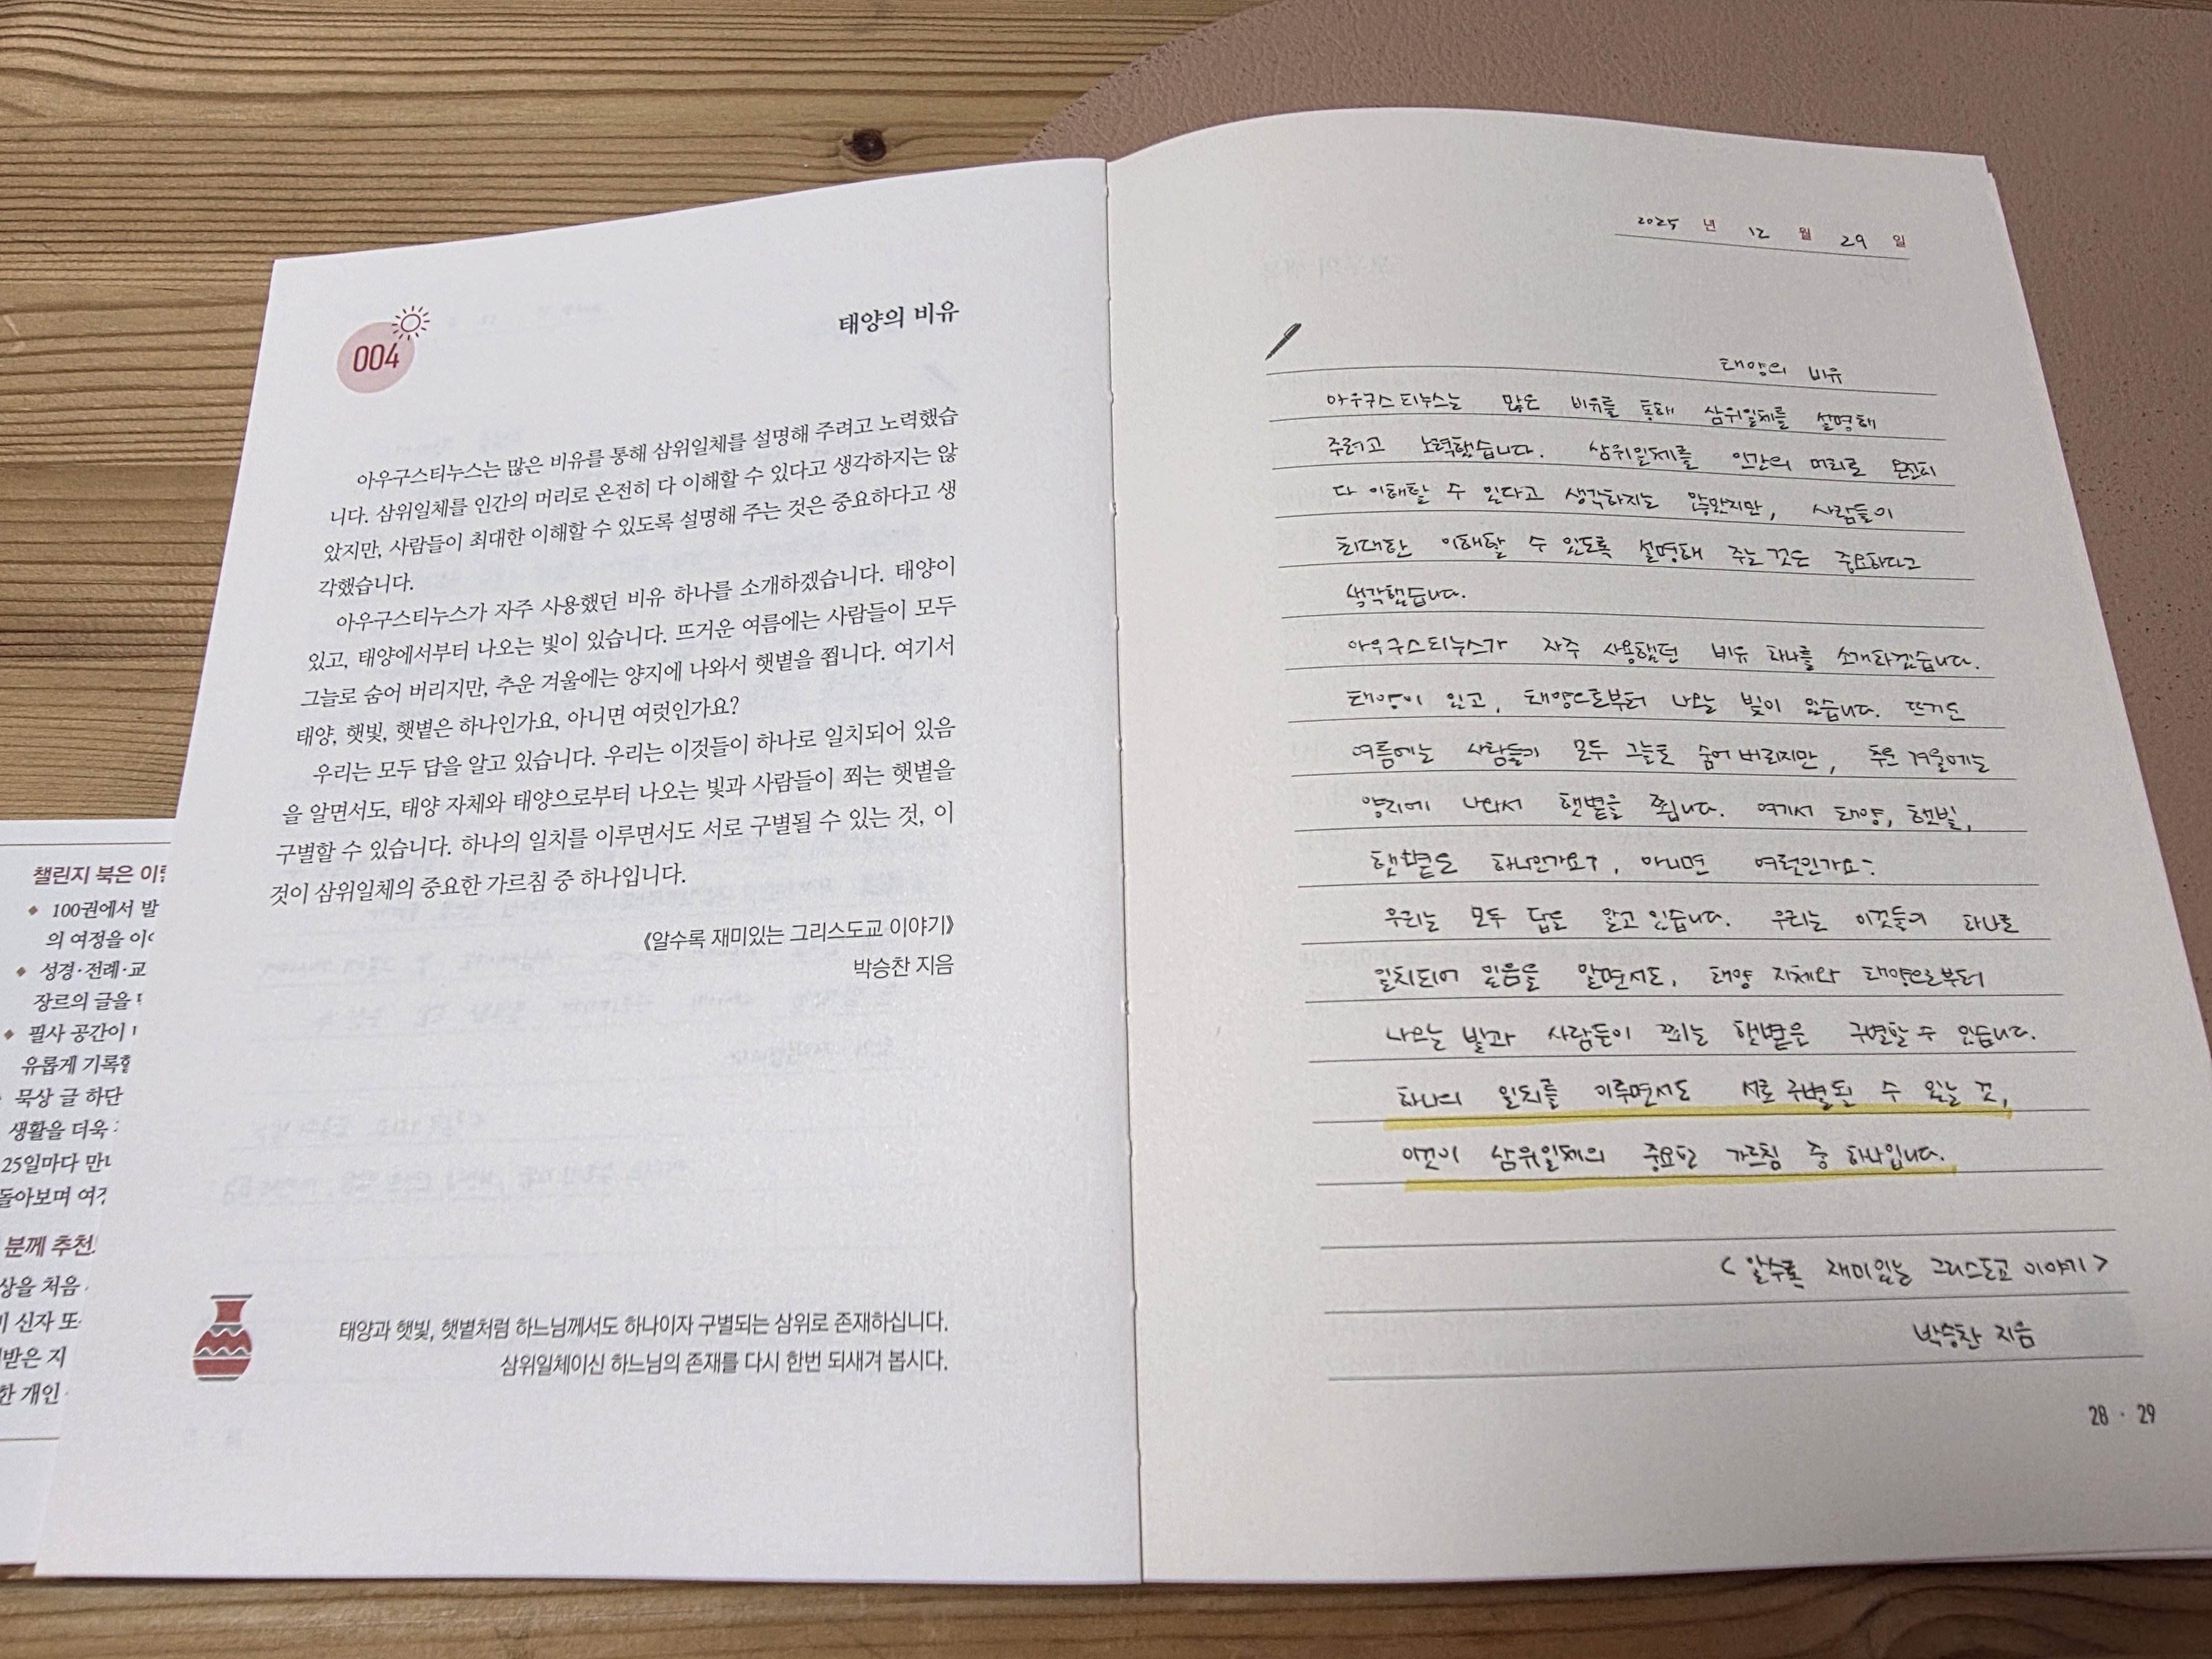 챌린지 북은 이렇
100권에서 발
의 여정을 이
성경·전례·교
장르의 글을
필사 공간이
유롭게 기록할
묵상 글 하단
생활을 더욱
25일마다 만
돌아보며 여
분께 추천
상을 처음
신자 또
받은 지
한 개인
004
태양의 비유
아우구스티누스는 많은 비유를 통해 삼위일체를 설명해 주려고 노력했습
니다. 삼위일체를 인간의 머리로 온전히 다 이해할 수 있다고 생각하지는 않
았지만, 사람들이 최대한 이해할 수 있도록 설명해 주는 것은 중요하다고 생
각했습니다.
아우구스티누스가 자주 사용했던 비유 하나를 소개하겠습니다. 태양이
있고, 태양에서부터 나오는 빛이 있습니다. 뜨거운 여름에는 사람들이 모두
그늘로 숨어 버리지만, 추운 겨울에는 양지에 나와서 햇볕을 쬡니다. 여기서
태양, 햇빛, 햇볕은 하나인가요, 아니면 여럿인가요?
우리는 모두 답을 알고 있습니다. 우리는 이것들이 하나로 일치되어 있음
을 알면서도, 태양 자체와 태양으로부터 나오는 빛과 사람들이 쬐는 햇볕을
구별할 수 있습니다. 하나의 일치를 이루면서도 서로 구별될 수 있는 것, 이
것이 삼위일체의 중요한 가르침 중 하나입니다.
《알수록 재미있는 그리스도교 이야기》
박승찬 지음
태양과 햇빛, 햇볕처럼 하느님께서도 하나이자 구별되는 삼위로 존재하십니다.
삼위일체이신 하느님의 존재를 다시 한번 되새겨 봅시다.
2025 년 12 월 29 일
태양의 비유
아우구스티누스는 많은 비유를 통해 삼위일체를 설명해
주려고 노력했습니다. 삼위일체를 인간의 머리로 온전히
다 이해할 수 있다고 생각하지는 않았지만, 사람들이
최대한 이해할 수 있도록 설명해 주는 것은 중요하다고
생각했습니다.
아우구스티누스가 자주 사용했던 비유 하나를 소개하겠습니다.
태양이 있고, 태양으로부터 나오는 빛이 있습니다. 뜨거운
여름에는 사람들이 모두 그늘로 숨어 버리지만, 추운 겨울에는
양지에 나와서 햇볕을 쬡니다. 여기서 태양, 햇빛,
햇볕은 하나인가요?, 아니면 여럿인가요?
우리는 모두 답을 알고 있습니다. 우리는 이것들이 하나로
일치되어 있음을 알면서도, 태양 자체와 태양으로부터
나오는 빛과 사람들이 쬐는 햇볕을 구별할 수 있습니다.
하나의 일치를 이루면서도 서로 구별될 수 있는 것,
이것이 삼위일체의 중요한 가르침 중 하나입니다.
< 알수록 재미있는 그리스도교 이야기 >
박승찬 지음
28 · 29